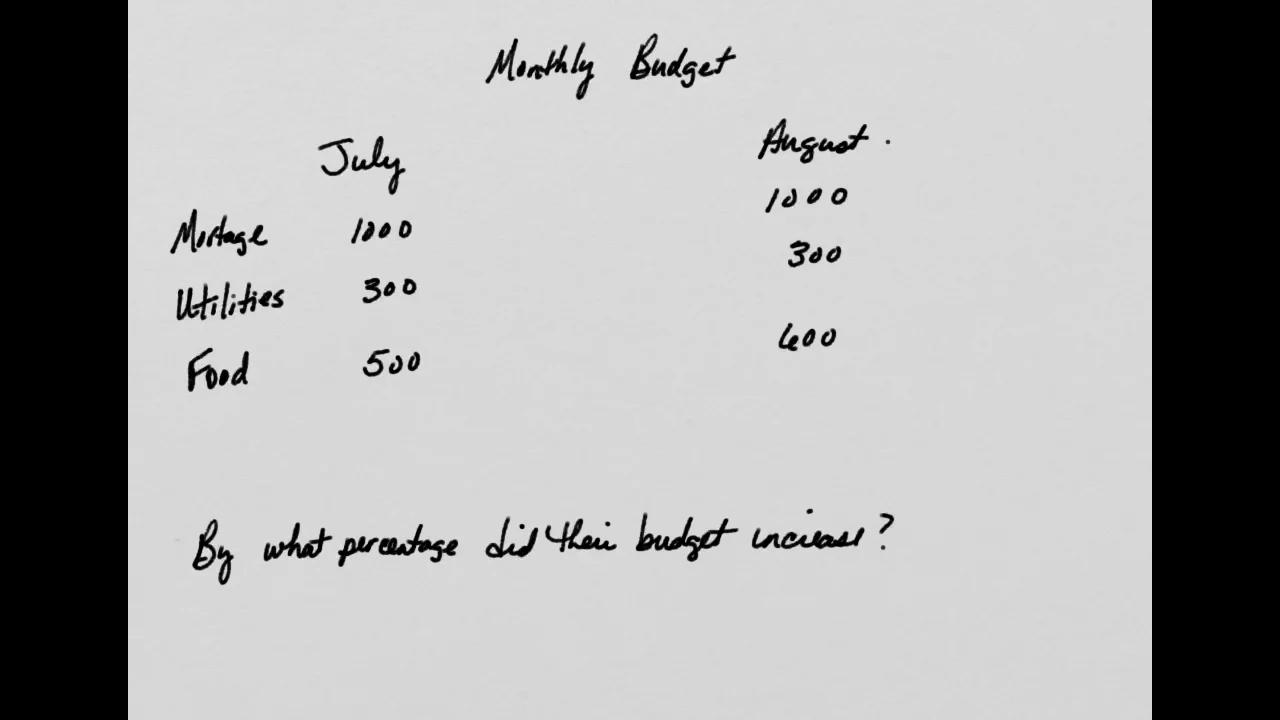 Monthly Budget
July August
Mortage 1000 1000
Utilities 300 300
Food 500 600
By what percentage did their budget increase?